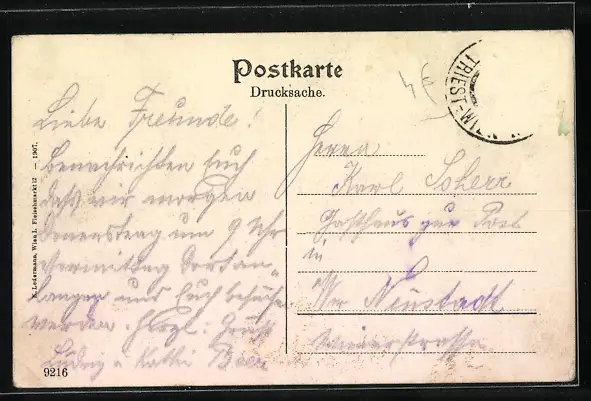 Postkarte
Drucksache.
TRIEST-WI
Liebe Freunde!
Benachrichten Euch
daß wir morgen
Donnerstag um 9 Uhr
Vormittag dort an-
langen und Euch besuchen
werden. Herzl. Grüße
Ludwig u. Kathi
Herrn
Karl Scherr
Gasthaus zur Post
in
Wr Neustadt
Wienerstrasse
K. Ledermann, Wien I. Fleischmarkt 12 — 1907.
9216